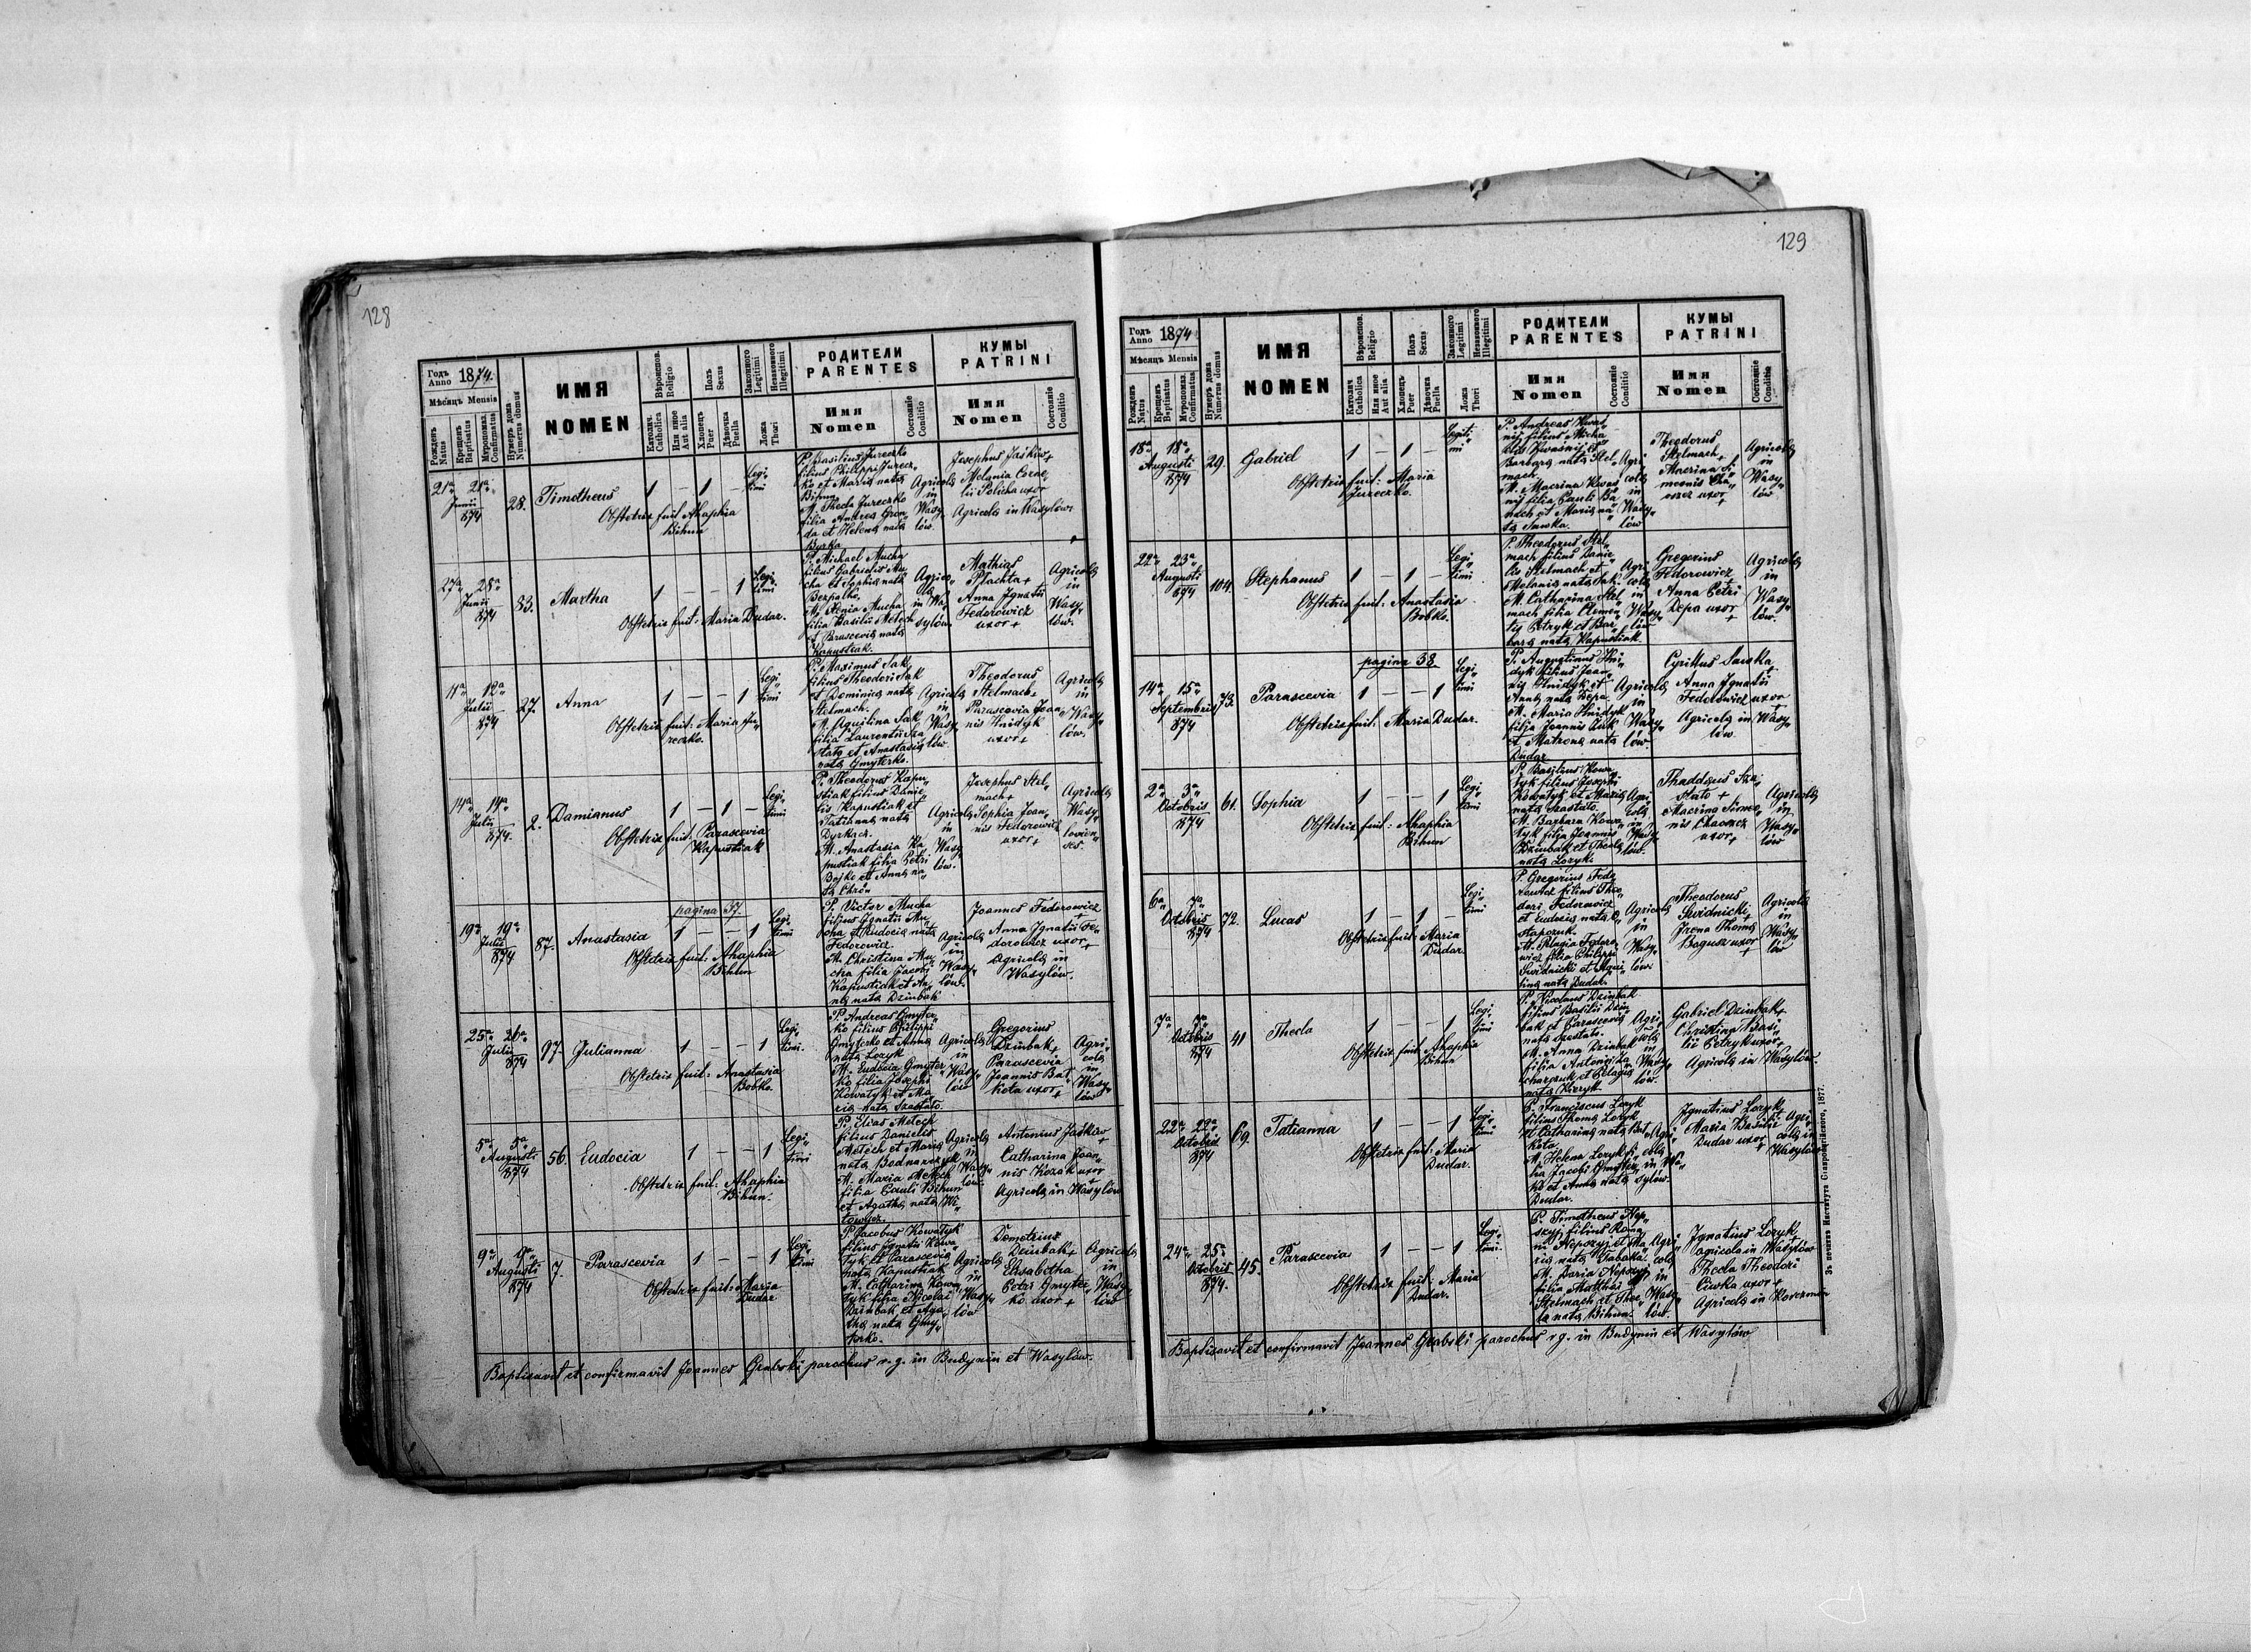 128
Годъ Anno 1874.
Мѣсяцъ Mensis
Рожденъ Natus
Крещенъ Baptisatus
Мѵропомаз. Confirmatus
Нумеръ дома Numerus domus
ИМЯ
NOMEN
Вѣроиспов. Religio
Католич. Catholica
Или иное Aut alia
Полъ Sexus
Хлопецъ Puer
Дѣвочка Puella
Законного Legitimi
Незаконного Illegitimi
Ложа Thori
РОДИТЕЛИ
PARENTES
Имя Nomen
Состояніе Conditio
КУМЫ
PATRINI
Имя Nomen
Состояніе Conditio
21a 21a
Junii
874
28.
Timotheus
1 – 1 –
Legi„
timi
Obstetrix fuit Ahaphia
Bihun
P. Basilius Jureczko
filius Philippi Jurecz„
ko et Maria nata
Bihun
M. Thecla Jureczko
filia Andrea
da et Helena nata
Byrka
Agricola
in
Wasy„
lów.
Josephus Jaśków +
Melania Corne„
lii Policha uxor
Agricola in Wasylów.
27a 28a
Junii
874
83.
Martha
1 – – 1
Legi„
timi
Obstetrix fuit: Maria Dudar.
P. Michael Mucha
filius Gabrielis Mu„
cha et Sophia nata
Bezpalko.
M. Xenia Mucha
filia Basilii Metech
et Parascevia nata
Kapustiak.
Agrico„
la
in Wa„
sylów.
Mathias
Plachta +
Anna Ignatii
Fedorowicz
uxor +
Agricola
in
Wasy„
lów.
11a 12a
Julii
874
27.
Anna
1 – – 1
Legi„
timi
Obstetrix fuit: Maria Ju„
reczko.
P. Maximus Sak
filius Theodori Sak
et Dominica nata
Stelmach.
M. Aquilina Sak
filia Laurentii Sza„
stato et Anastasia
nata Gmyterko.
Agricola
in
Wasy„
lów.
Theodorus
Stelmach +
Parascevia Joan„
nis Hnidyk
uxor +
Agricola
in
Wasy„
lów.
14a 14a
Julii
874.
2.
Damianus
1 – 1 –
Legi„
timi
Obstetrix fuit: Parascevia
Kapustiak
P. Theodorus Kapu„
stiak filius Danie„
lis Kapustiak et
Tatianna nata
Dyrkacz.
M. Anastasia Ka„
pustiak filia Petri
Bojko et Anna na„
ta Chrón
Agricola
in
Wasy„
lów.
Josephus Stel„
mach +
Sophia Joan„
nis Fedorowicz
uxor +
Agricola
Wasy„
lovien„
ses.
pagina 37.
19a 19a
Julii
874
87.
Anastasia
1 – – 1
Legi„
timi
Obstetrix fuit: Ahaphia
Bihun
P. Victor Mucha
filius Ignatii Mu„
cha et Eudocia nata
Fedorowicz.
M. Christina Mu„
cha filia Jacobi
Kapustiak et An„
na nata Dziubak
Agricola
in
Wasy„
lów.
Joannes Fedorowicz
+
Anna Ignatii Fe„
dorowicz uxor +
Agricola in
Wasylów.
25a 26a
Julii
874
97.
Julianna
1 – – 1
Legi„
timi.
Obstetrix fuit: Anastasia
Bobko.
P. Andreas Gmyter„
ko filius Philippi
Gmyterko et Anna
nata Lozyk
M. Eudocia Gmyter„
ko filia Josephi
Kowatyk et Ma„
ria nata Szastato.
Agricola
in
Wasy„
lów
Gregorius
Dziubak +
Parascevia
Joannis Bat„
kota uxor +
Agri„
cola
in
Wasy„
lów
5a 5a
Augusti
874
56.
Eudocia
1 – – 1
Legi„
timi
Obstetrix fuit: Ahaphia
Bihun.
P. Elias Metech
filius Danielis
Metech et Maria
nata Bednarczyk
M. Maria Metech
filia Pauli Bihun
et Agatha nata Wi„
towycz.
Agricola
in
Wasy„
lów.
Antonius Jaśków
+
Catharina Joan„
nis Kozak uxor
+
Agricola in Wasylów
9a 9a
Augusti
874
7.
Parascevia
1 – – 1
Legi„
timi
Obstetrix fuit: Maria
Dudar
P. Jacobus Kowatyk
filius Ignatii Kowa„
tyk et Parascevia
nata Kapustiak
M. Catharina Kowa„
tyk filia Nicolai
Dziubak et Aga„
tha nata Gmy„
terko.
Agricola
in
Wasy„
lów
Demetrius
Dziubak +
Elisabetha
Petri Gmyter„
ko uxor +
Agricola
in
Wasy„
lów
Baptisavit et confirmavit Joannes Grabski parochus r. g. in Budynin et Wasylów.
129
Годъ Anno 1874
Мѣсяцъ Mensis
Рожденъ Natus
Крещенъ Baptisatus
Мѵропомаз. Confirmatus
Нумеръ дома Numerus domus
ИМЯ
NOMEN
Вѣроиспов. Religio
Католич. Catholica
Или иное Aut alia
Полъ Sexus
Хлопецъ Puer
Дѣвочка Puella
Законного Legitimi
Незаконного Illegitimi
Ложа Thori
РОДИТЕЛИ
PARENTES
Имя Nomen
Состояніе Conditio
КУМЫ
PATRINI
Имя Nomen
Состояніе Conditio
18a 18a
Augusti
874
29.
Gabriel
1 – 1 –
Legiti„
mi
Obstetrix fuit: Maria
Jureczko.
P. Andreas Kwaś„
nij filius Micha„
elis Kwaśnij et
Barbara nata Stel„
mach.
M. Macrina Kwaś„
nij filia Pauli Ba„
nach et Maria na„
ta Sawka.
Agri„
cola
in
Wasy„
lów
Theodorus
Stelmach +
Macrina Si„
meonis Cha„
uxor +
Agricola
in
Wasy„
lów
22a 23a
Augusti
874
104.
Stephanus
1 – 1 –
Legi„
timi
Obstetrix fuit: Anastasia
Bobko.
P. Theodorus Stel„
mach filius Danie„
lis Stelmach et
Melania nata Sak.
M. Catharina Stel„
mach filia Clemen„
tis Petryk et Bar„
bara nata Kapustiak.
Agri„
cola
in
Wasy„
lów
Gregorius
Fedorowicz
+
Anna Petri
Depa uxor
+
Agricola
in
Wasy„
lów.
pagina 38
14a 15a
Septembris
874
73.
Parascevia
1 – – 1
Legi„
timi
Obstetrix fuit: Maria Dudar.
P. Augustinus Hni„
dyk filius Joan„
nis Hnidyk et
Anna nata Depa
M. Maria Hnidyk
filia Joannis
et Matrona nata
Dudar
Agricola
in
Wasy„
lów.
Cyrillus Sawka
+
Anna Ignatii
Fedorowicz uxor
+
Agricola in Wasy„
lów.
2a 3a
Octobris
874
61.
Sophia
1 – – 1
Legi„
timi
Obstetrix fuit: Ahaphia
Bihun
P. Basilius Kowa„
tyk filius Josephi
Kowatyk et Maria
nata Szastato.
M. Barbara Kowa„
tyk filia Joannis
Dziubak et Thecla
nata Lozyk.
Agri„
cola
in
Wasy„
lów.
Thaddaus Sza„
stato +
Macrina Simeo„
nis
uxor +
Agricola
in
Wasy„
lów
6a 7a
Octobris
874
72.
Lucas
1 – 1 –
Legi„
timi
Obstetrix fuit: Maria
Dudar.
P. Gregorius Fedo„
rowicz filius Theo„
dori Fedorowicz
et Eudocia nata O„
stapczuk.
M. Pelagia Fedoro„
wicz filia Philippi
Swidnicki et Aqui„
lina nata Dudar.
Agricola
in
Wasy„
lów
Theodorus
Swidnicki +
Irena Thoma
Bogusz uxor
+
Agricola
in
Wasy„
lów
7a 7a
Octobris
874
41
Thecla
1 – – 1
Legi„
timi
Obstetrix fuit: Ahaphia
Bihun
P. Nicolaus Dziubak
filius Basilii Dziu„
bak et Parascevia
nata Szastato.
M. Anna Dziubak
filia Antonii Za„
charczuk et Pelagia
nata
Agri„
cola
in
Wasy„
lów.
Gabriel Dziubak +
Christina Basi„
lii Petryk uxor +
Agricola in Wasylów.
22a 22a
Octobris
874
69.
Tatianna
1 – – 1
Legi„
timi
Obstetrix fuit: Maria
Dudar.
P. Franciscus Lozyk
filius Thoma Lozyk
et Catharina nata Bat„
kota
M. Helena Lozyk fi„
lia Jacobi Gmyter„
ko et Anna nata
Dudar.
Agri„
cola
in Wa„
sylów.
Ignatius Lozyk
+
Maria Basilii
Dudar uxor +
Agri„
cola in
Wasylów
24a 25a
Octobris
874.
45.
Parascevia
1 – – 1
Legi„
timi.
Obstetrix fuit: Maria
Dudar.
P. Timotheus Nep„
szyj filius Roma„
ni Nepszyj et Ma„
ria nata Tabaka.
M. Daria Nepszyj
filia Matthai
Stelmach et Thec„
la nata Bihun.
Agri„
cola
in
Wasy„
lów.
Ignatius Lozyk +
agricola in Wasylów
Thecla Theodori
Ciwka uxor +
Agricola in
Baptisavit et confirmavit Joannes Grabski parochus r. g. in Budynin et Wasylów
Зъ печатни Института Ставропигійского, 1877.